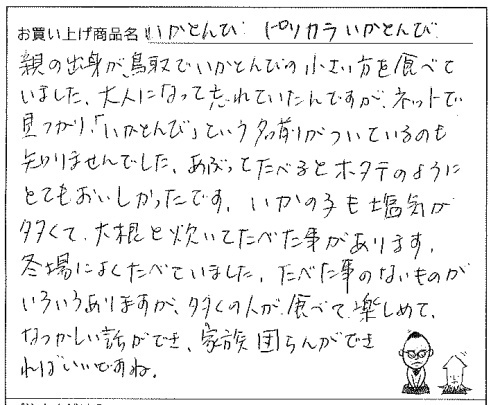 お買い上げ商品名 いかとんび ピリカラいかとんび
親の出身が鳥取でいかとんびの小さい方を食べて
いました、大人になって忘れていたんですが、ネットで
見つかり!「いかとんび」という名前がついているのも
知りませんでした、あぶってたべるとホタテのように
とてもおいしかったです。いかの子も塩気が
多くて、大根と炊いてたべた事があります。
冬場によくたべていました。たべた事のないものが
いろいろありますが、多くの人が食べて、楽しめて、
なつかしい話ができ、家族団らんができ
ればいいですね。